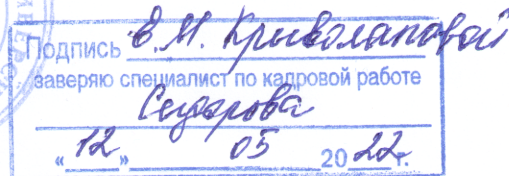 Подпись В.М. Криволаповой
заверяю специалист по кадровой работе
Сидорова
"12" 05 2022 г.